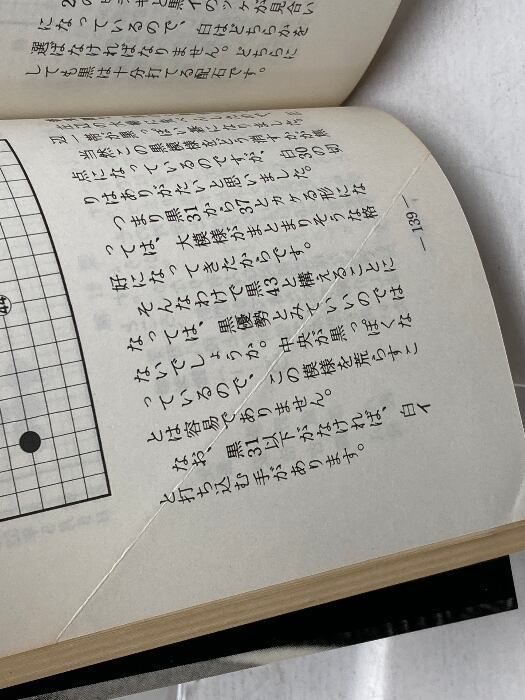 のヒラキと黒イのツケが見合い
になっているので、白はどちらかを
選ばなければなりません。どちらに
しても黒は十分打てる配石です。
辺一帯が黒っぽい碁になりました。
当然この黒模様をどう消すかが焦
点になっているのですが、白30の切
りはありがたいと思いました。
つまり黒31から37とカケる形にな
っては、大模様がまとまりそうな格
好になってきたからです。
そんなわけで黒43と構えることに
なっては、黒優勢とみていいのでは
ないでしょうか。中央が黒っぽくな
っているので、この模様を荒らすこ
とは容易でありません。
なお、黒31以下がなければ、白イ
と打ち込む手があります。
—139—
44